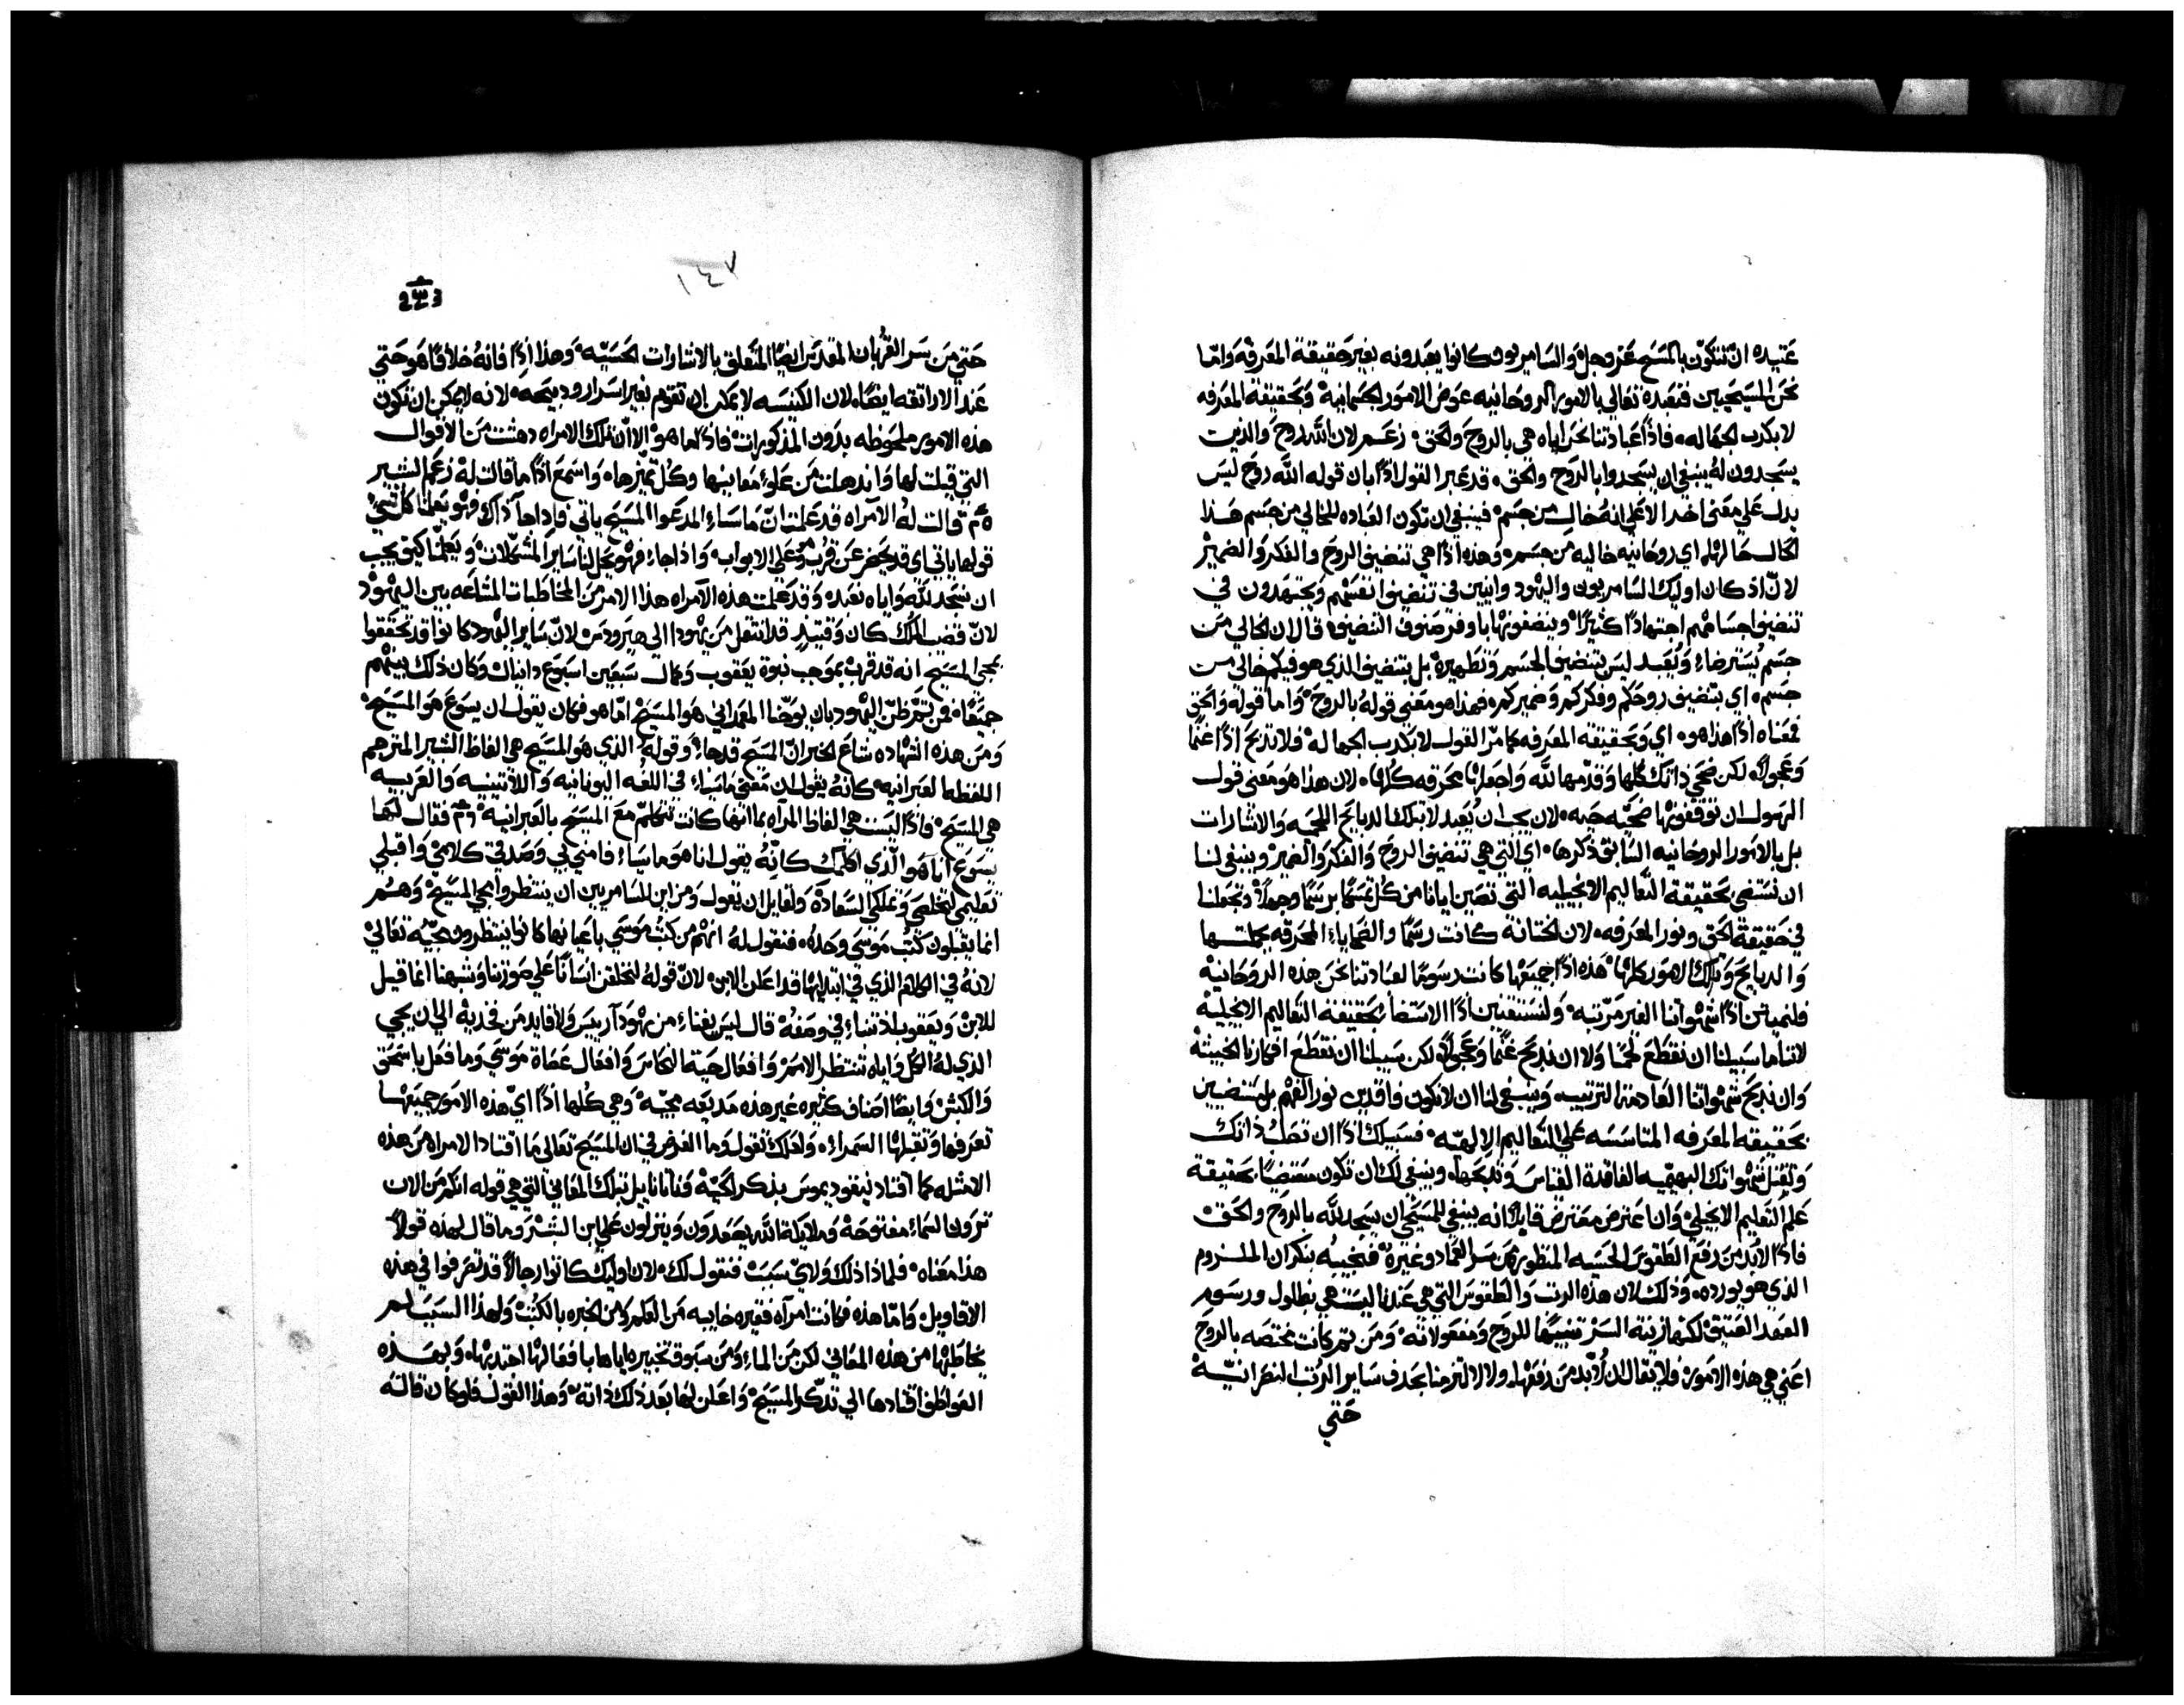 عتيده ان تتكون بالمسيح عز وجل والسامريون كانوا يعبدونه بغير حقيقة المعرفه واما
نحن المسيحيين فنعبده تعالي بالامور الروحانيه عوض الامور الجسمانية وبحقيقة المعرفه
لا بكدب الجهاله. فاذا عبادتنا نحن اياه هي بالروح والحق. زعم لان الله روح والذين
يسجدون له ينبغي ان يسجدوا بالروح والحق. قد عبر القول اذا بان قوله الله روح ليس
يدل علي معني اخر الا علي انه خال من جسم فينبغي ان تكون العباده للخالي من جسم هذا
الحال حالها اي روحانيه خاليه من جسم. وهذه اذا هي تنضيف الروح والفكر والضمير
لان اذ كان اوليك السامريون واليهود وانيين في تنضيف انفسهم ويجتهدون في
تنضيف اجسامهم اجتهادا كثيرا وينضفونها باوفر صنوف التنضيف قال ان الخالي من
جسم يسترضاء ويعبد ليس بتنضيف الجسم وتطهيره بل بتنضيف الذي هو فيكم خالي من
جسم. اي بتنضيف روحكم وفكركم وضميركم. فهذا هو معني قوله بالروح. واما قوله والحق
فمعناه اذا هذا هو. اي وبحقيقة المعرفه كما مر القول لا بكدب الجهاله فلا تذبح اذا غنما
وعجولا. لكن ضحي ذاتك كلها وقدمها لله واجعلها محرقه كلها. لان هذا هو معني قول
الرسول ان توقفونها ضحيه حيه. لان يجب ان يعبد لا بتلك الدبايح اللحميه والاشارات
بل بالامور الروحانيه السابق ذكرها. اي التي هي تنضيف الروح والفكر والضمير وينبغي لنا
ان نستضي بحقيقة التعاليم الانجيليه التي تصين ايانا من كل تمسك برسما وجهلا. وتجعلنا
في حقيقة الحق ونور المعرفه. لان الختانه كانت رسما والضحايا المحرقه بجملتها
والدبايح وتلك الامور كلها هذه اذا جميعها كانت رسوما لعبادتنا نحن هذه الروحانيه
فلنميتن اذا شهواتنا الغير مرتبه. ولنستفتين اذا الاستضا بحقيقة التعاليم الانجيليه
لاننا ما سبيلنا ان نقطع لحما ولا ان نذبح غنما وعجولا ولكن سبيلنا ان نقطع افكارنا الخبيثه
وان نذبح شهواتنا العادمة الترتيب. وينبغي لنا ان لا نكون فاقدين نور الفهم بل مستضيين
بحقيقة المعرفه المتاسسه علي التعاليم الالهيه. فسبيلك اذا ان تصلب ذاتك
وتقتل شهواتك البهيميه الفاقدة القياس وتذبحها. وينبغي لك ان تكون مستضيا بحقيقة
علم التعليم الانجيلي. وان اعترض معترض قايلا انه ينبغي للمسيحي ان يسجد لله بالروح والحق
فاذا لابد من رفع الطقوس الحسيه المنظوره من سر العماد وغيره. فنجيبه بنكران الملزوم
الذي هو يورده. وذلك لان هذه الرتب والطقوس التي هي عندنا ليست هي بظلول ورسوم
العهد العتيق لكنها زينة السر تنبيها للروح ومفعولاته. ومن ثم كانت مختصه بالروح
اعني هي هذه الامور. فلا يقال ان لابد من رفعها. والا لالتزمنا بحدف ساير الرتب النصرانيه
حتي
١٤٧
حتي من سر القربان المقدس ايضا المتعلق بالاشارات الحسيه. وهذا اذا فانه خلافا هو حتي
عند الاراتقه ايضا. لان الكنيسه لا يمكن ان تقوم بغير اسرار وذبيحه. لانه لا يمكن ان تكون
هذه الامور ملحوظه بدون المذكورات. فاذا اما هو الا ان تلك الامراه دهشت من الاقوال
التي قيلت لها واندهلت من علو معانيها وكل تميزها. واسمع اذا ما قالت له زعم البشير
قالت له الامراه قد علمت ان ماسيا المدعوا المسيح ياتي فاذا جا ذاك فهو يعلمنا كل شي
قولها ياتي اي قد يحضر عن قرب هو علي الابواب. واذا جاء فهو يحل لنا ساير المشكلات. ويعلمنا كيف يجب
ان نسجد لله واياه نعبد. وقد علمت هذه الامراه هذا الامر من المخاطبات المشاعه بين اليهود
لان قضيب الملك كان وقتيذ قد انتقل من يهودا الي هيرودس لان ساير اليهود كانوا قد تحققوا
مجي المسيح انه قد قرب بموجب نبوة يعقوب وكمال سبعين اسبوع دانيال وكان ذلك بينهم
جميعا. فمن ثم ظن اليهود بان يوحنا المعمداني هو المسيح اما هو فكان يقول ان يسوع هو المسيح
ومن هذه الشهاده شاع الخبر ان المسيح قد جاء. وقوله الذي هو المسيح هي الفاظ البشير المترجم
اللفظه العبرانيه كانه يقول ان معني ماسيا في اللغه اليونانيه واللاتينيه والعربيه
هي المسيح. فاذا ليست هي الفاظ المراه بما انها كانت تتكلم مع المسيح بالعبرانيه. فقال لها
يسوع انا هو الذي اكلمك كانه يقول انا هو ماسياء فامني بي وصدقي كلامي واقبلي
تعليمي لتخلصي وتملكي السعاده. ولقايل ان يقول ومن اين للسامريين ان ينتظروا مجي المسيح وهم
انما يقبلون كتب موسي وحده. فنقول له انهم من كتب موسي باعيانها كانوا ينتظرون مجيه تعالي
لانه في الكلام الذي في ابتدايها قد اعلن الابن. لان قوله لنخلقن انسانا علي صورتنا وشبهنا انما قيل
للابن ويعقوب اذ تنبا في وصفه قال ليس يفناء من يهودا رييس ولا قايد من فخديه الي ان يجي
الذي له الكل واياه تنتظر الامم. وافعال حية النحاس وافعال عصاة موسي وما فعل باسحق
والكبش وايضا اصناف كثيره غير هذه مذيعه مجيه. وهي كلها اذا اي هذه الامور جميعها
تعرفها وتقبلها السمراء. ولعلك تقول وما الغرض في ان المسيح تعالي ما اقتاد الامراه من هذه
الامثله كما اقتاد نيقوديموس بذكر الحيه. وناثانايل بتلك المعاني التي هي قوله انكم من الان
ترون السماء مفتوحه وملايكة الله يصعدون وينزلون علي ابن البشر وما قال لهذه قولا
هذا معناه. فلماذا ذلك ولاي سبب. فنقول لك. لان اوليك كانوا رجالا قد تصرفوا في هذه
الاقاويل. واما هذه فكانت امراه فقيره خايبه من العلم ومن الخبره بالكتب. ولهذا السبب لم
يخاطبها من هذه المعاني لكن من الماء ومن سبوق تخبيره اياها بافعالها اجتذبها. وبهذه
العواطف اقتادها الي تذكر المسيح. واعلن لها بعد ذلك ذاته. وهذا القول فلو كان قاله